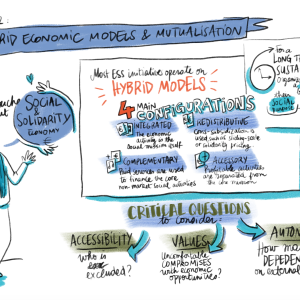 RID ECONOMIC MODELS & MUTUALISATION
Most ESS initiatives operate on
HYBRID MODELS
4 MAIN
CONFIGURATIONS
INTEGRATED
The economic
activity is the
social mission itself
REDISTRIBUTIVE
Cross-subsidization is
used such as sliding-scale
or solidarity pricing
COMPLEMENTARY
Paid services are used
to finance the core
non-market social activities
ACCESSORY
Profitable activities
are separated from
the core mission
SOCIAL
& SOLIDARITY
ECONOMY
For a
LONG T
SUSTA
SOCIAL
PURPOSE
CRITICAL QUESTIONS
to consider:
ACCESSIBILITY
Who is
excluded?
VALUES
Uncomfortable
COMPROMISES
with economic
opportunities?
AUTON
How ma
DEPEND
on external